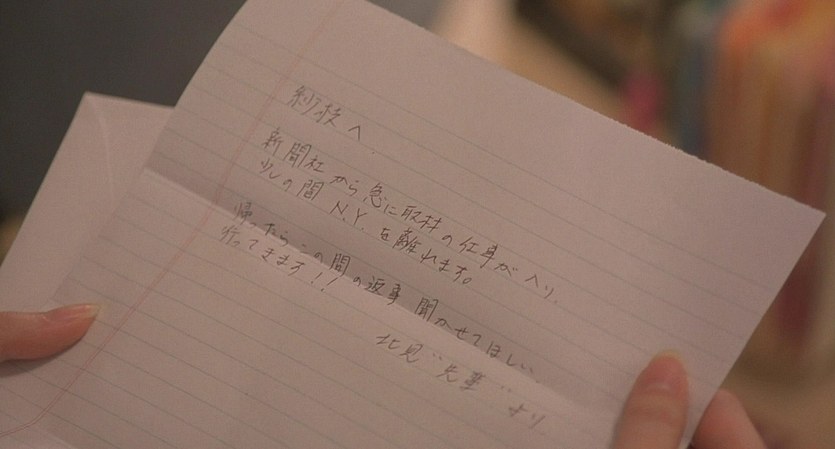 紗枝へ
新聞社から急に取材の仕事が入り、
少しの間 N.Y.を離れます。
帰ったらこの間の返事 聞かせてほしい。
行ってきます!!
北見"先輩"より